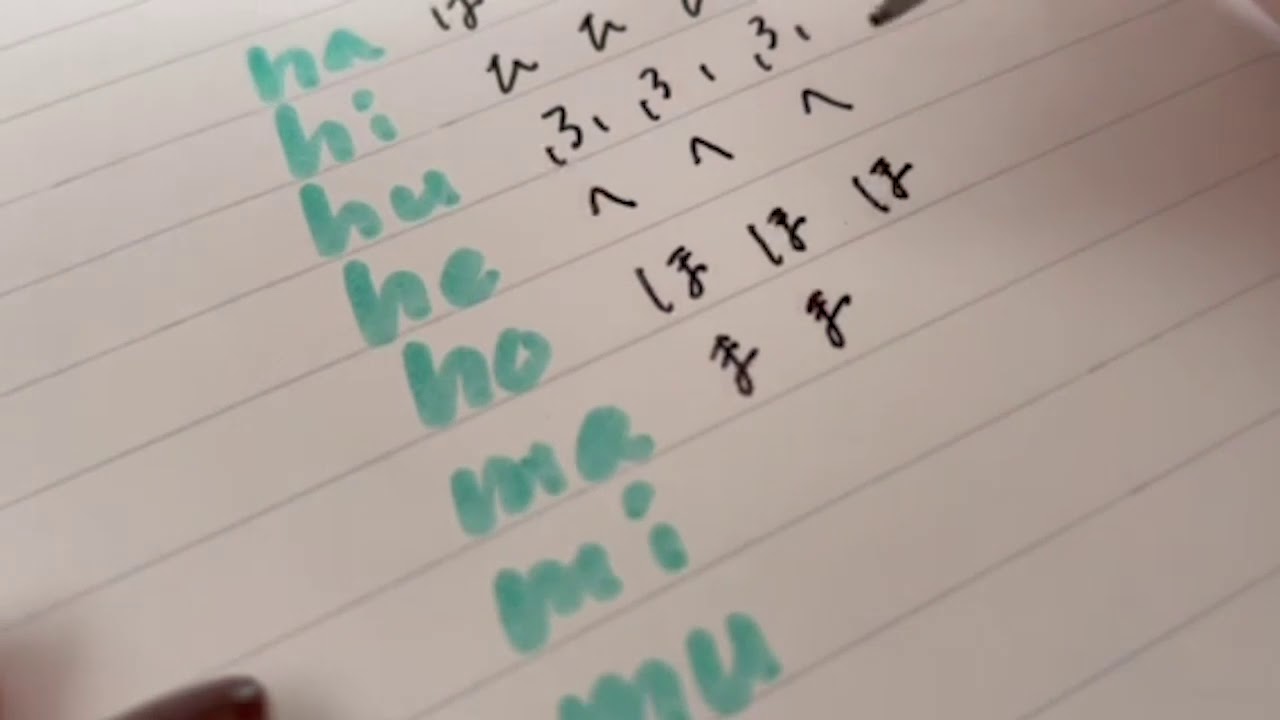 ha は
hi ひ ひ ひ
hu ふ ふ ふ
he へ へ へ
ho ほ ほ ほ
ma ま ま
mi
mu